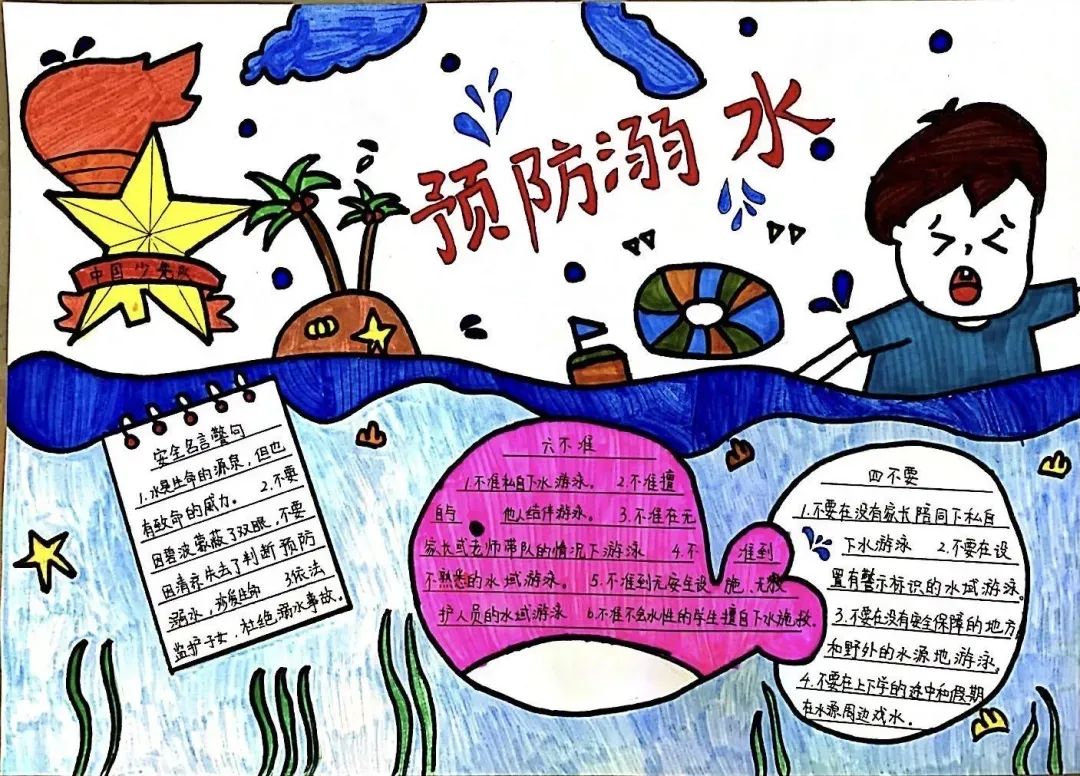 预防溺水
中国少先队
安全名言警句
1.水是生命的源泉,但也
有致命的威力。 2.不要
因碧波蒙蔽了双眼,不要
因清凉失去了判断预防
溺水,珍爱生命 3依法
监护子女,杜绝溺水事故。
六不准
1.不准私自下水游泳。 2.不准擅
自与 他人结伴游泳。 3.不准在无
家长或老师带队的情况下游泳 4.不 准到
不熟悉的水域游泳。 5.不准到无安全设 施、无救
护人员的水域游泳 6.不准不会水性的学生擅自下水施救。
四不要
1.不要在没有家长陪同下私自
下水游泳 2.不要在设
置有警示标识的水域游泳
3.不要在没有安全保障的地方
和野外的水源地游泳。
4.不要在上下学的途中和假期
在水源周边戏水。